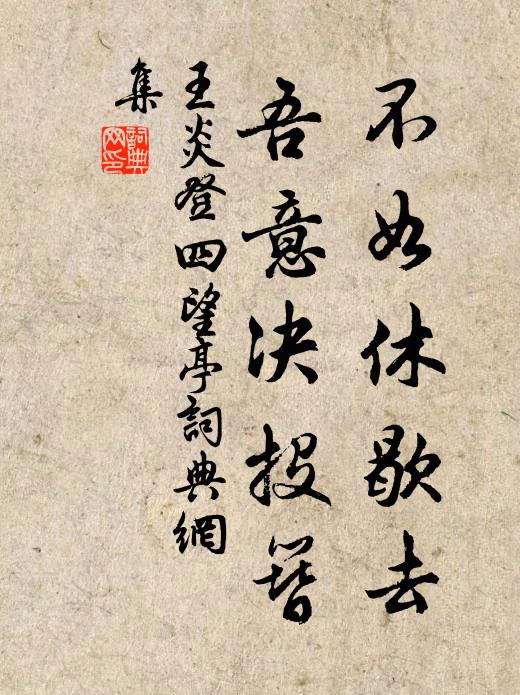 不如休歇去
吾意決投簪
王炎登四望亭詞典網
集
詞典
网印